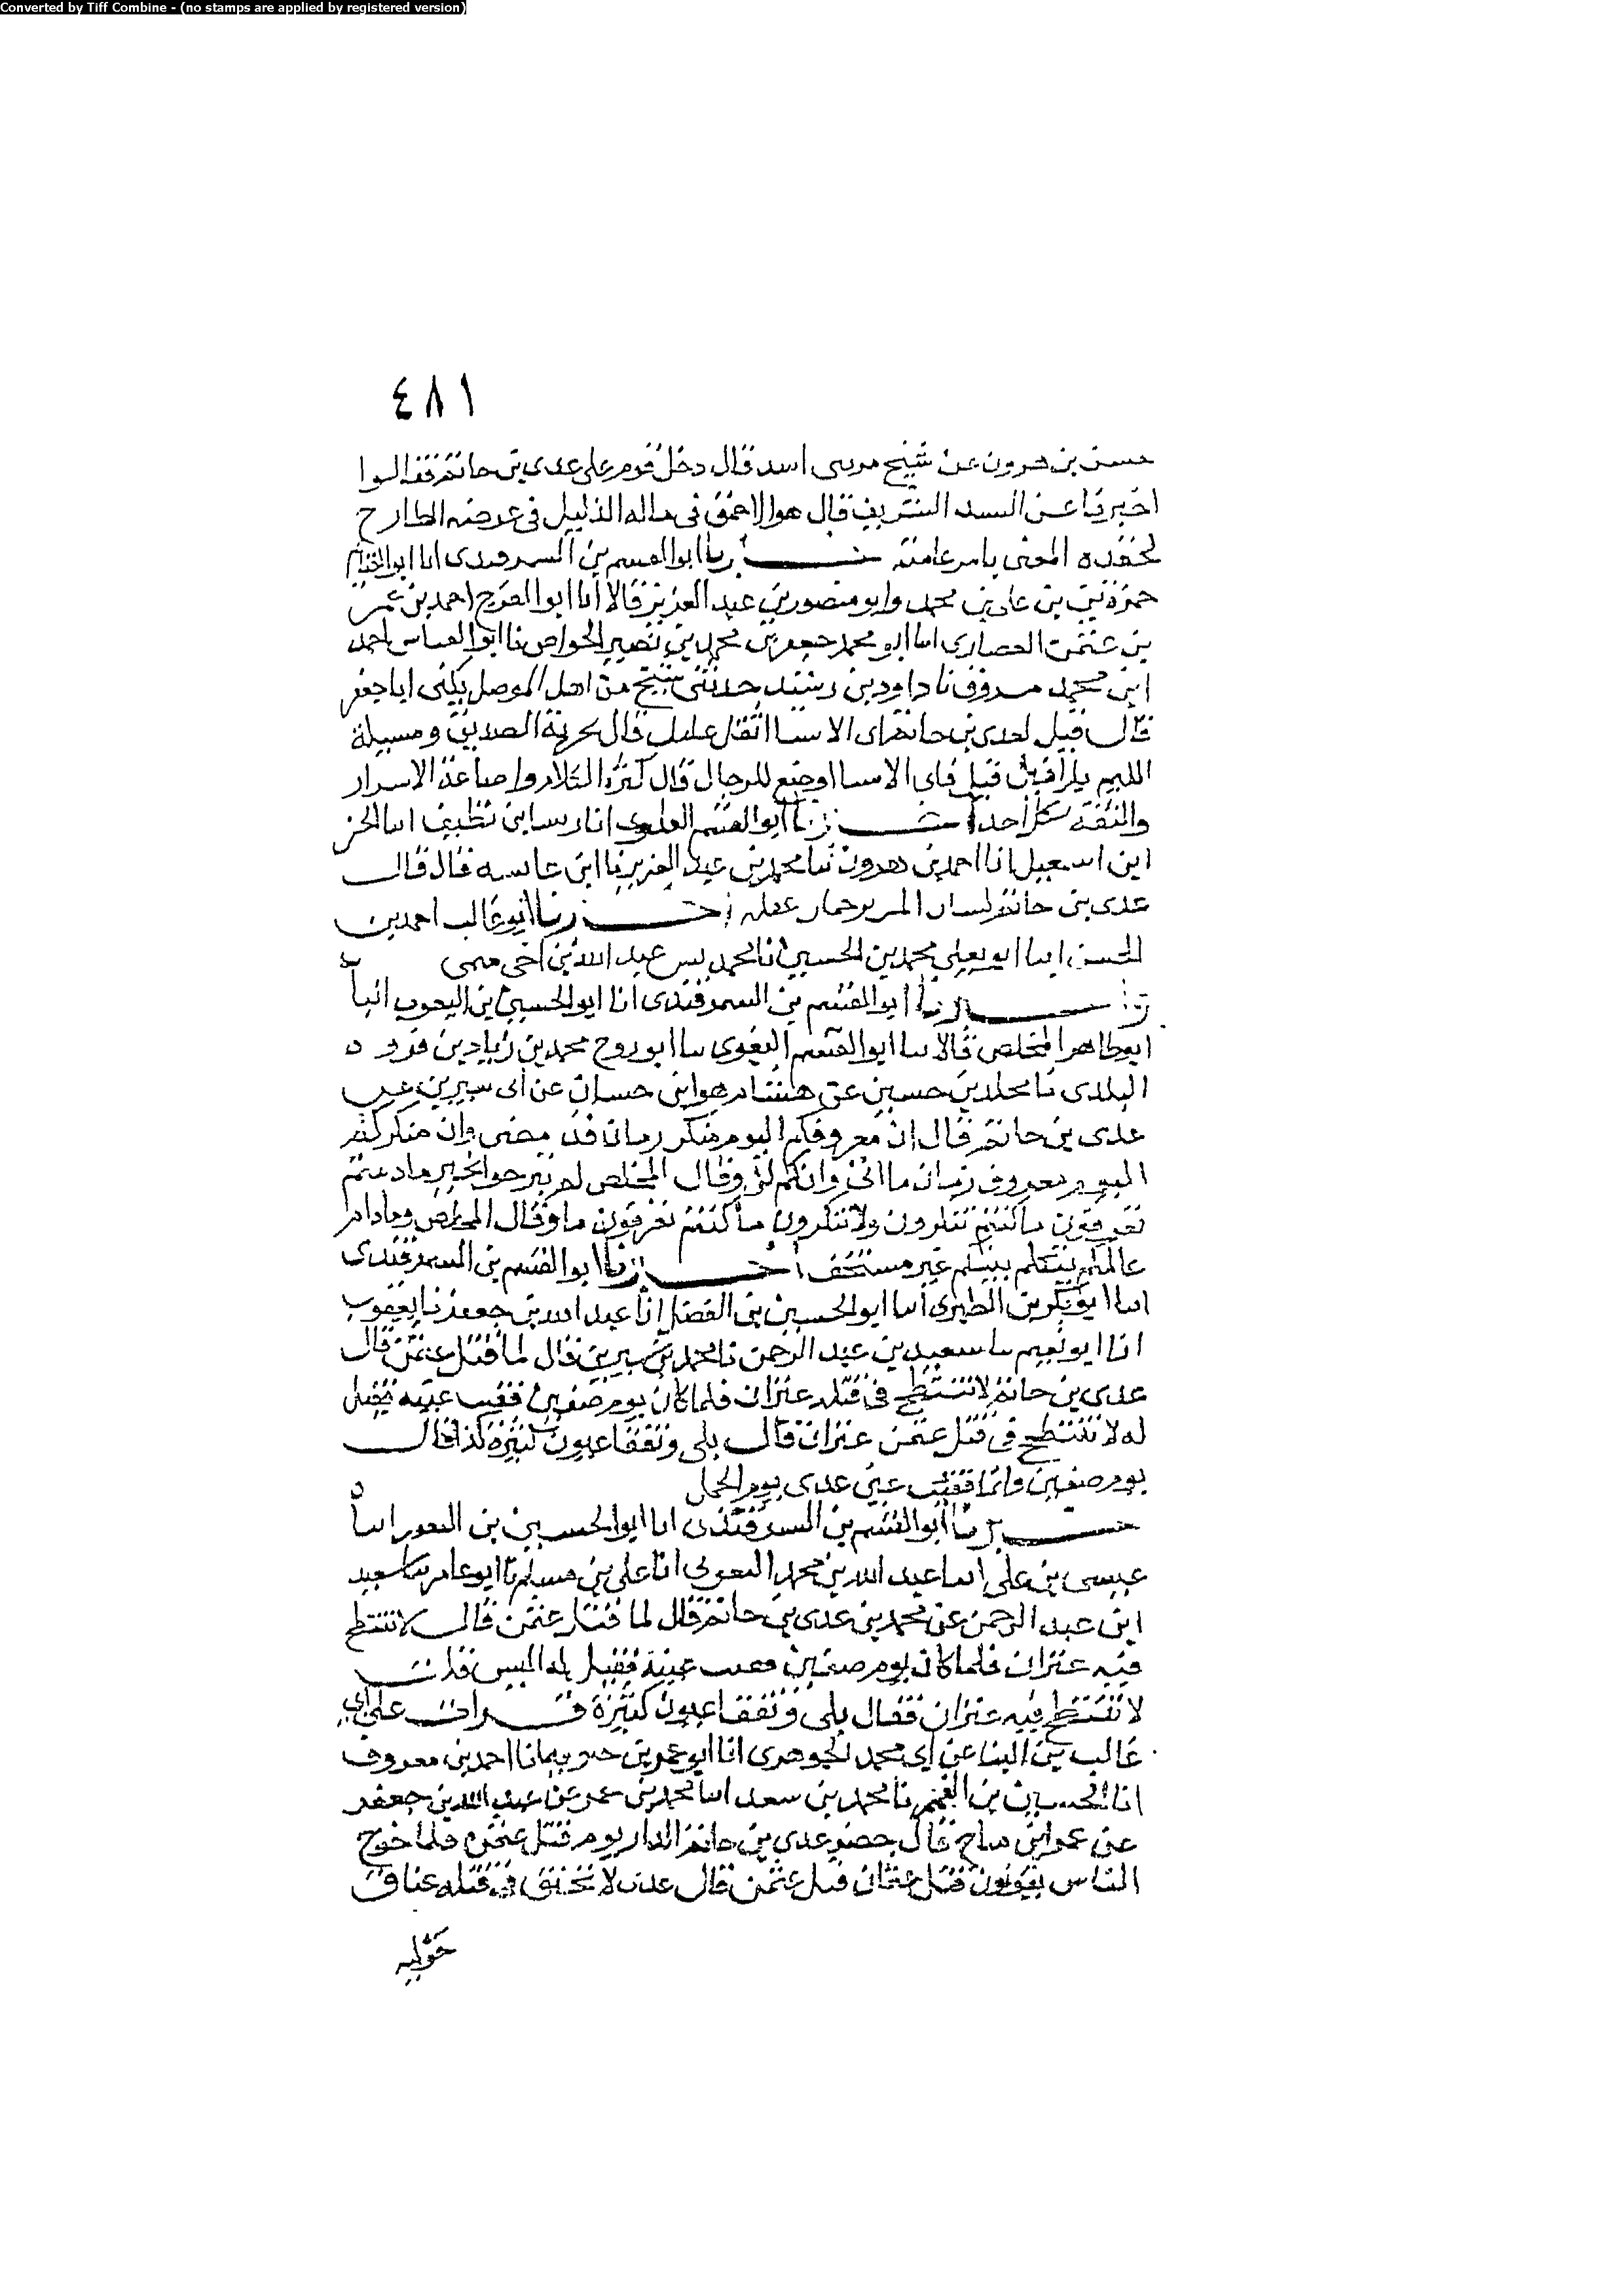 Converted by Tiff Combine - (no stamps are applied by registered version)
٤٨١
حسن بن هرون عن شيخ موسى اسد قال دخل قوم على عدى بن حاتم فقالوا
اخبرنا عن السيد الشريف قال هو الاحمق فى ماله الذليل فى عرضه الطارح
لحقده المعنى بامر عامته خبرنا ابو القسم بن السمرقندى انا ابو
حمزة بن على بن محمد وابو منصور بن عبد العزيز قالا انا ابو الفرج احمد بن عمر
بن عثمن العصارى انا ابو محمد جعفر بن محمد بن نصير الخواص نا ابو العباس احمد
ابن محمد مسروق نا داود بن رشيد حدثنى شيخ من اهل الموصل يكنى ابا جعفر
قال قيل لعدى بن حاتم اى الاشيا اثقل عليك قال تجربة الصديق ومسيلة
اللييم قيل فاى الاشيا اوضع للرجال قال كثرة الكلام واضاعة الاسرار
والثقة بكل احد اخبرنا ابو القسم العلوى انا رشا بن نظيف انا الحسن
ابن اسمعيل انا احمد بن هرون نا محمد بن عبد العزيز نا ابن عايشه قال قال
عدى بن حاتم لسان المر ترجمان عقله اخبرنا ابو غالب احمد بن
الحسن انا ابو يعلى محمد بن الحسين انا محمد بن عبد الله بن اخى ميمى
ح واخبرنا ابو القسم بن السمرقندى انا ابو الحسين بن النقور انبا
ابو طاهر المخلص قالا نا ابو القسم البغوى نا ابو روح محمد بن زياد بن فروه
البلدى نا مخلد بن حسين عن هشام هو ابن حسان عن ابن سيرين عن
عدى بن حاتم قال ان معروفكم اليوم منكر زمان قد مضى وان منكركم
اليوم معروف زمان ما اتى وانكم لن وقال المخلص لم تبرحوا بخير ما دمتم
تعرفون ما كنتم تنكرون ولا تنكرون ما كنتم تعرفون ما وقال المخلص وما دام
عالمكم يتكلم بينكم غير مستخف اخبرنا ابو القسم بن السمرقندى
انا ابو بكر بن الطبرى انا ابو الحسين بن الفضل انا عبد الله بن جعفر نا يعقوب
انا ابو نعيم نا سعيد بن عبد الرحمن نا محمد بن سيرين قال لما قتل عثمن قال
عدى بن حاتم لا تنتطح فى قتله عنزان فلما كان يوم صفين فقيت عينه فقيل
له لا تنتطح فى قتل عثمن عنزان قال بلى وتفقا عيون كثيرة كذا قال
يوم صفين وانما فقيت عين عدى يوم الجمل
خبرنا ابو القسم بن السمرقندى انا ابو الحسين بن النقور انبا
عيسى بن على انا عبد الله بن محمد البغوى انا على بن مسلم نا ابو عامر نا سعيد
ابن عبد الرحمن عن محمد بن عدى بن حاتم قال لما قتل عثمن قال لا تنتطح
فيه عنزان فلما كان يوم صفين فقيت عينه فقيل له اليس قلت
لا تنتطح فيه عنزان فقال بلى وتفقا عيون كثيرة قرات على ابى
غالب بن البنا عن ابى محمد الجوهرى انا ابو عمر بن حيويه انا احمد بن معروف
انا الحسين بن الفهم نا محمد بن سعد انا محمد بن عمر عن عبد الله بن جعفر
عن عمران بن مناح قال حضر عدى بن حاتم الدار يوم قتل عثمن فلما خرج
الناس يقولون قتل عثمان قتل عثمن قال عدى لا تحبق فى قتله عناق
حوليه